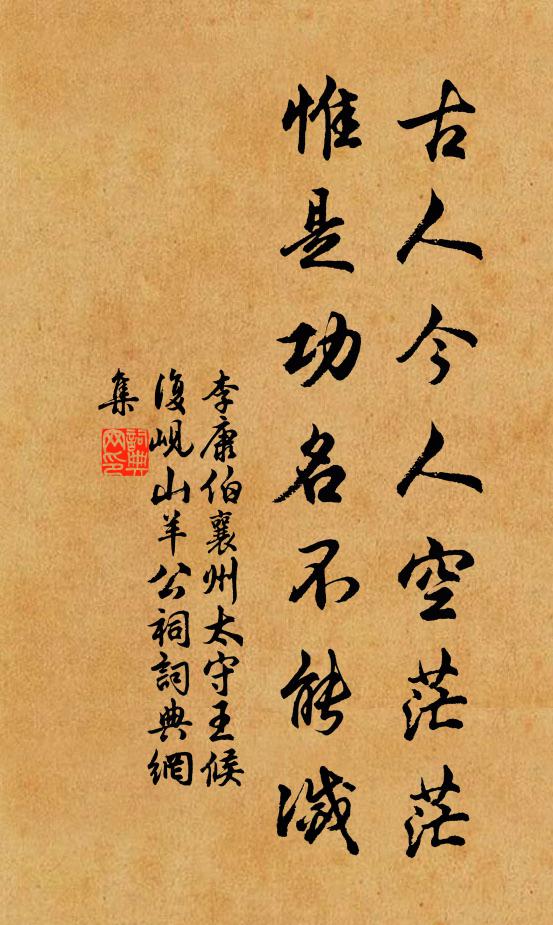 古人今人空茫茫
惟是功名不能滅
李康伯襄州太守王候
復峴山羊公祠詞典網
集
詞典网印